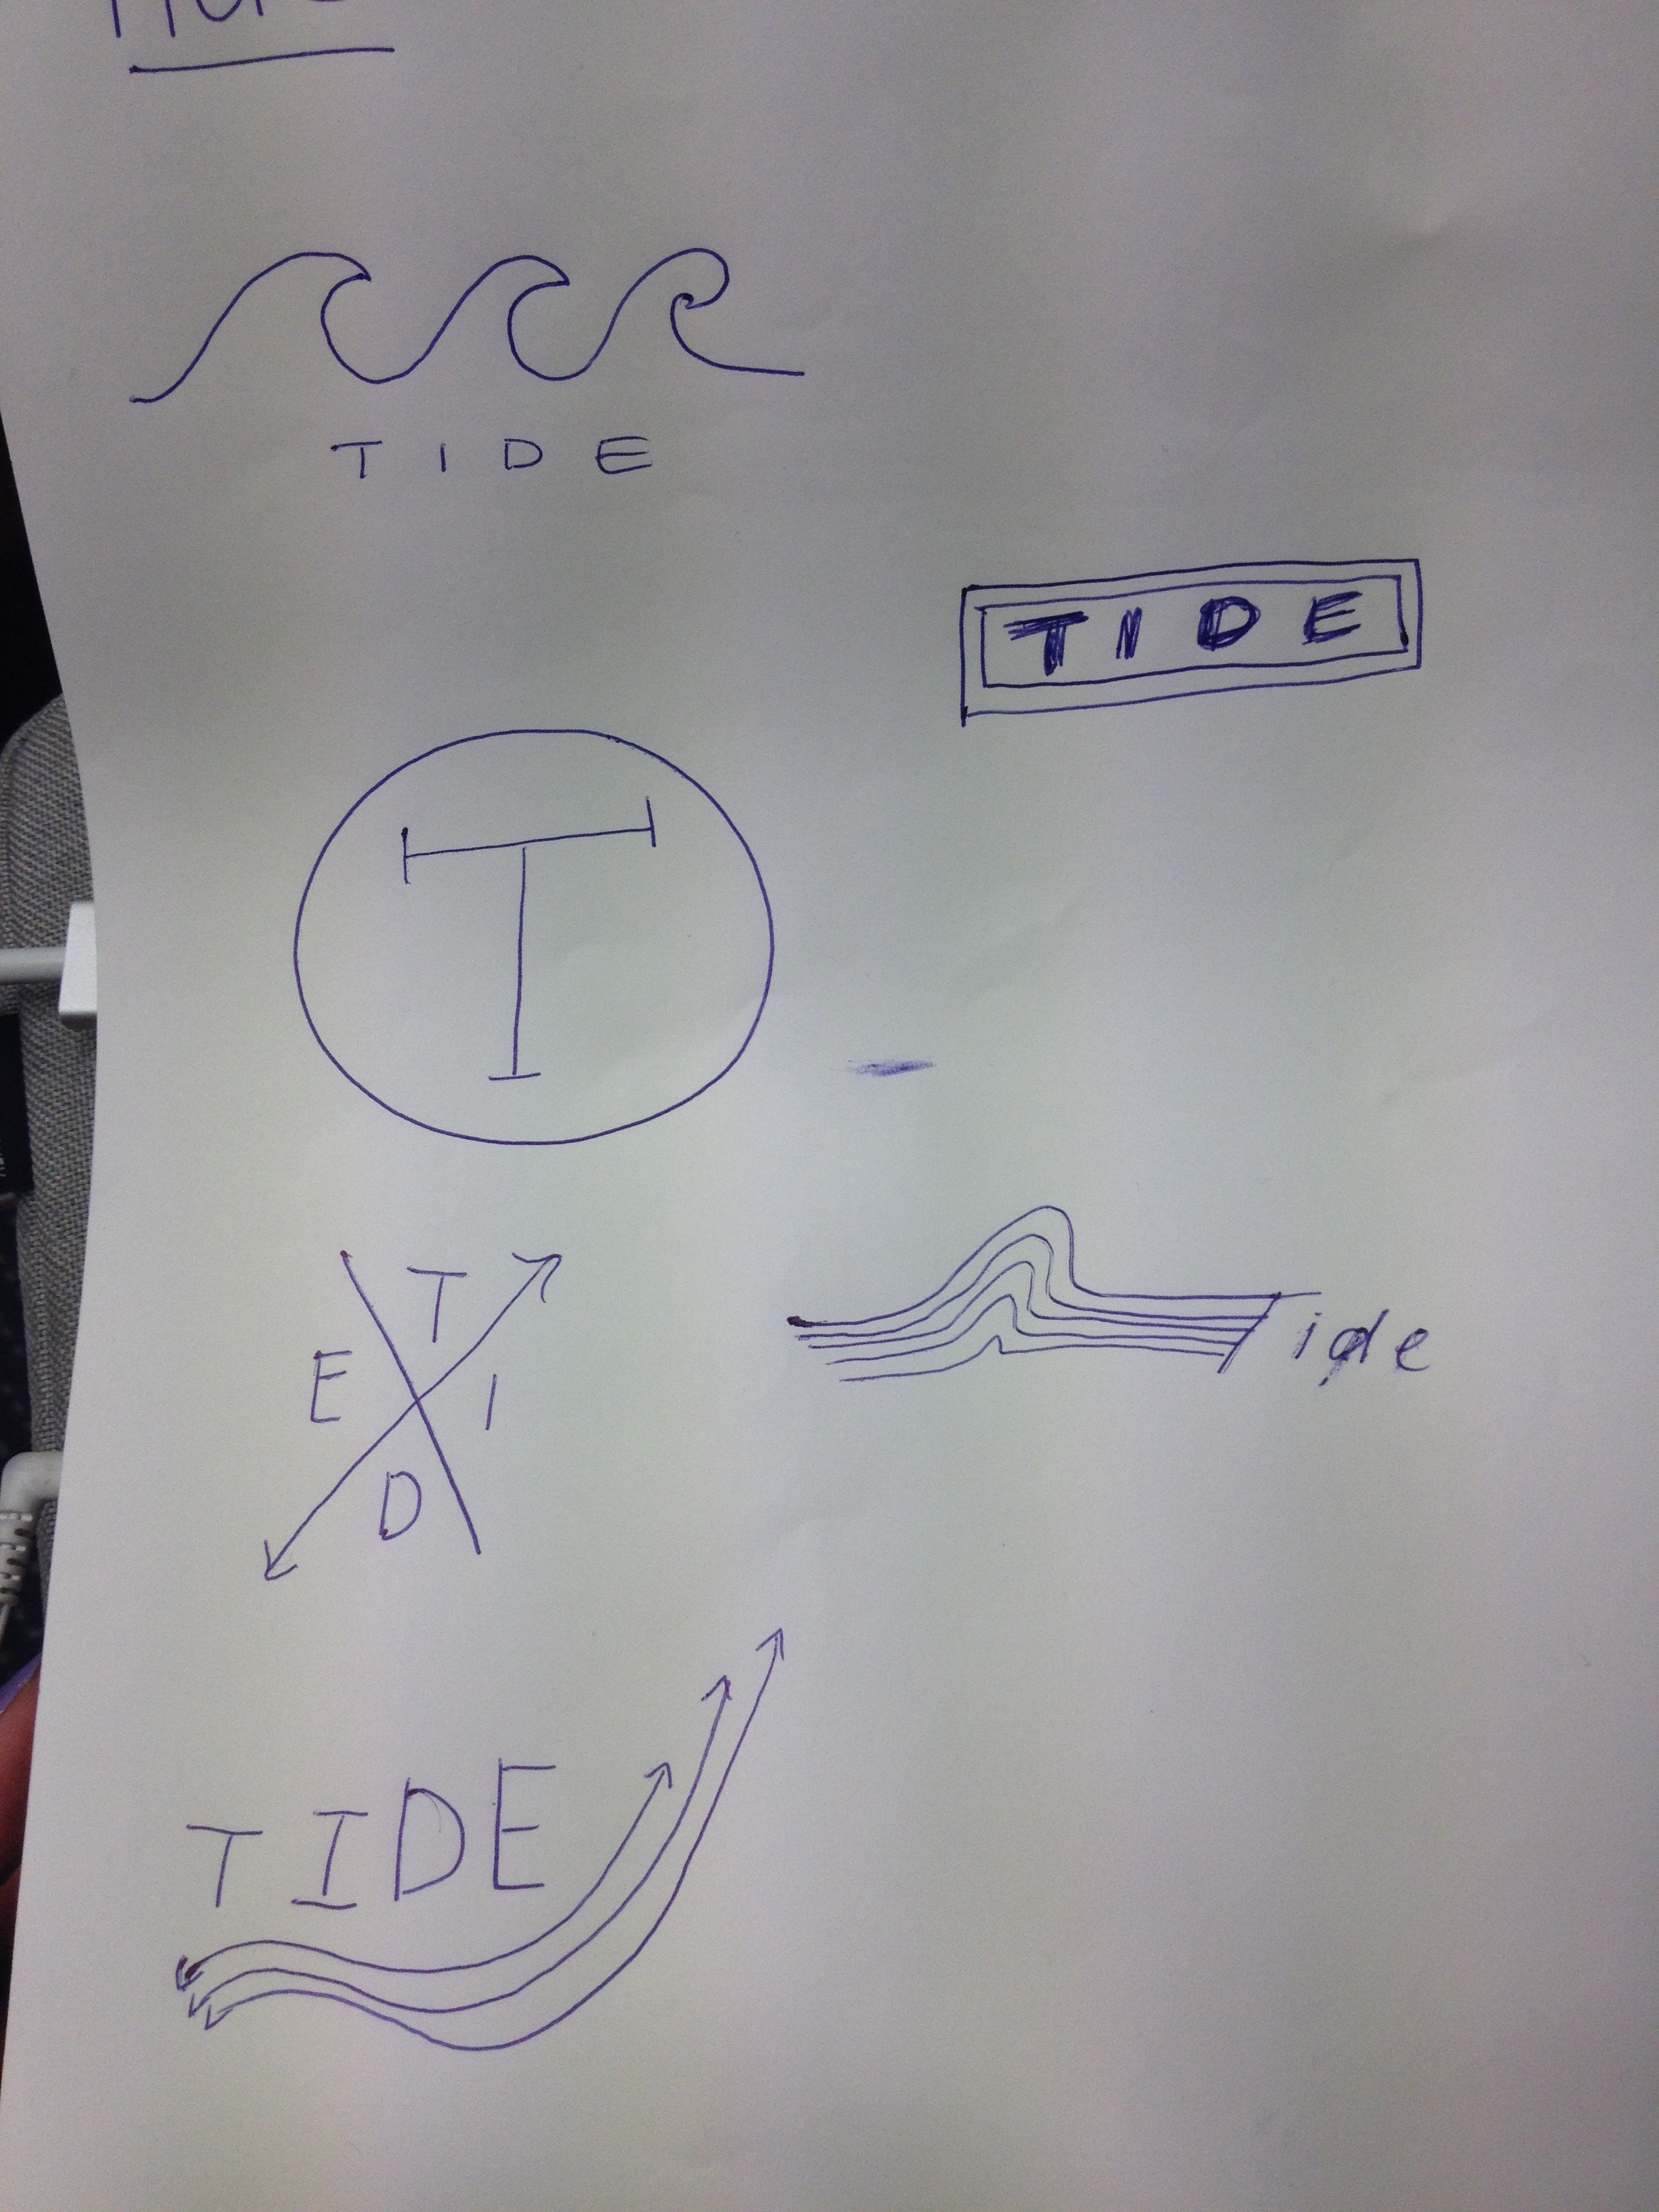 T I D E
T I D E
T
T
E I
D
Tide
TIDE